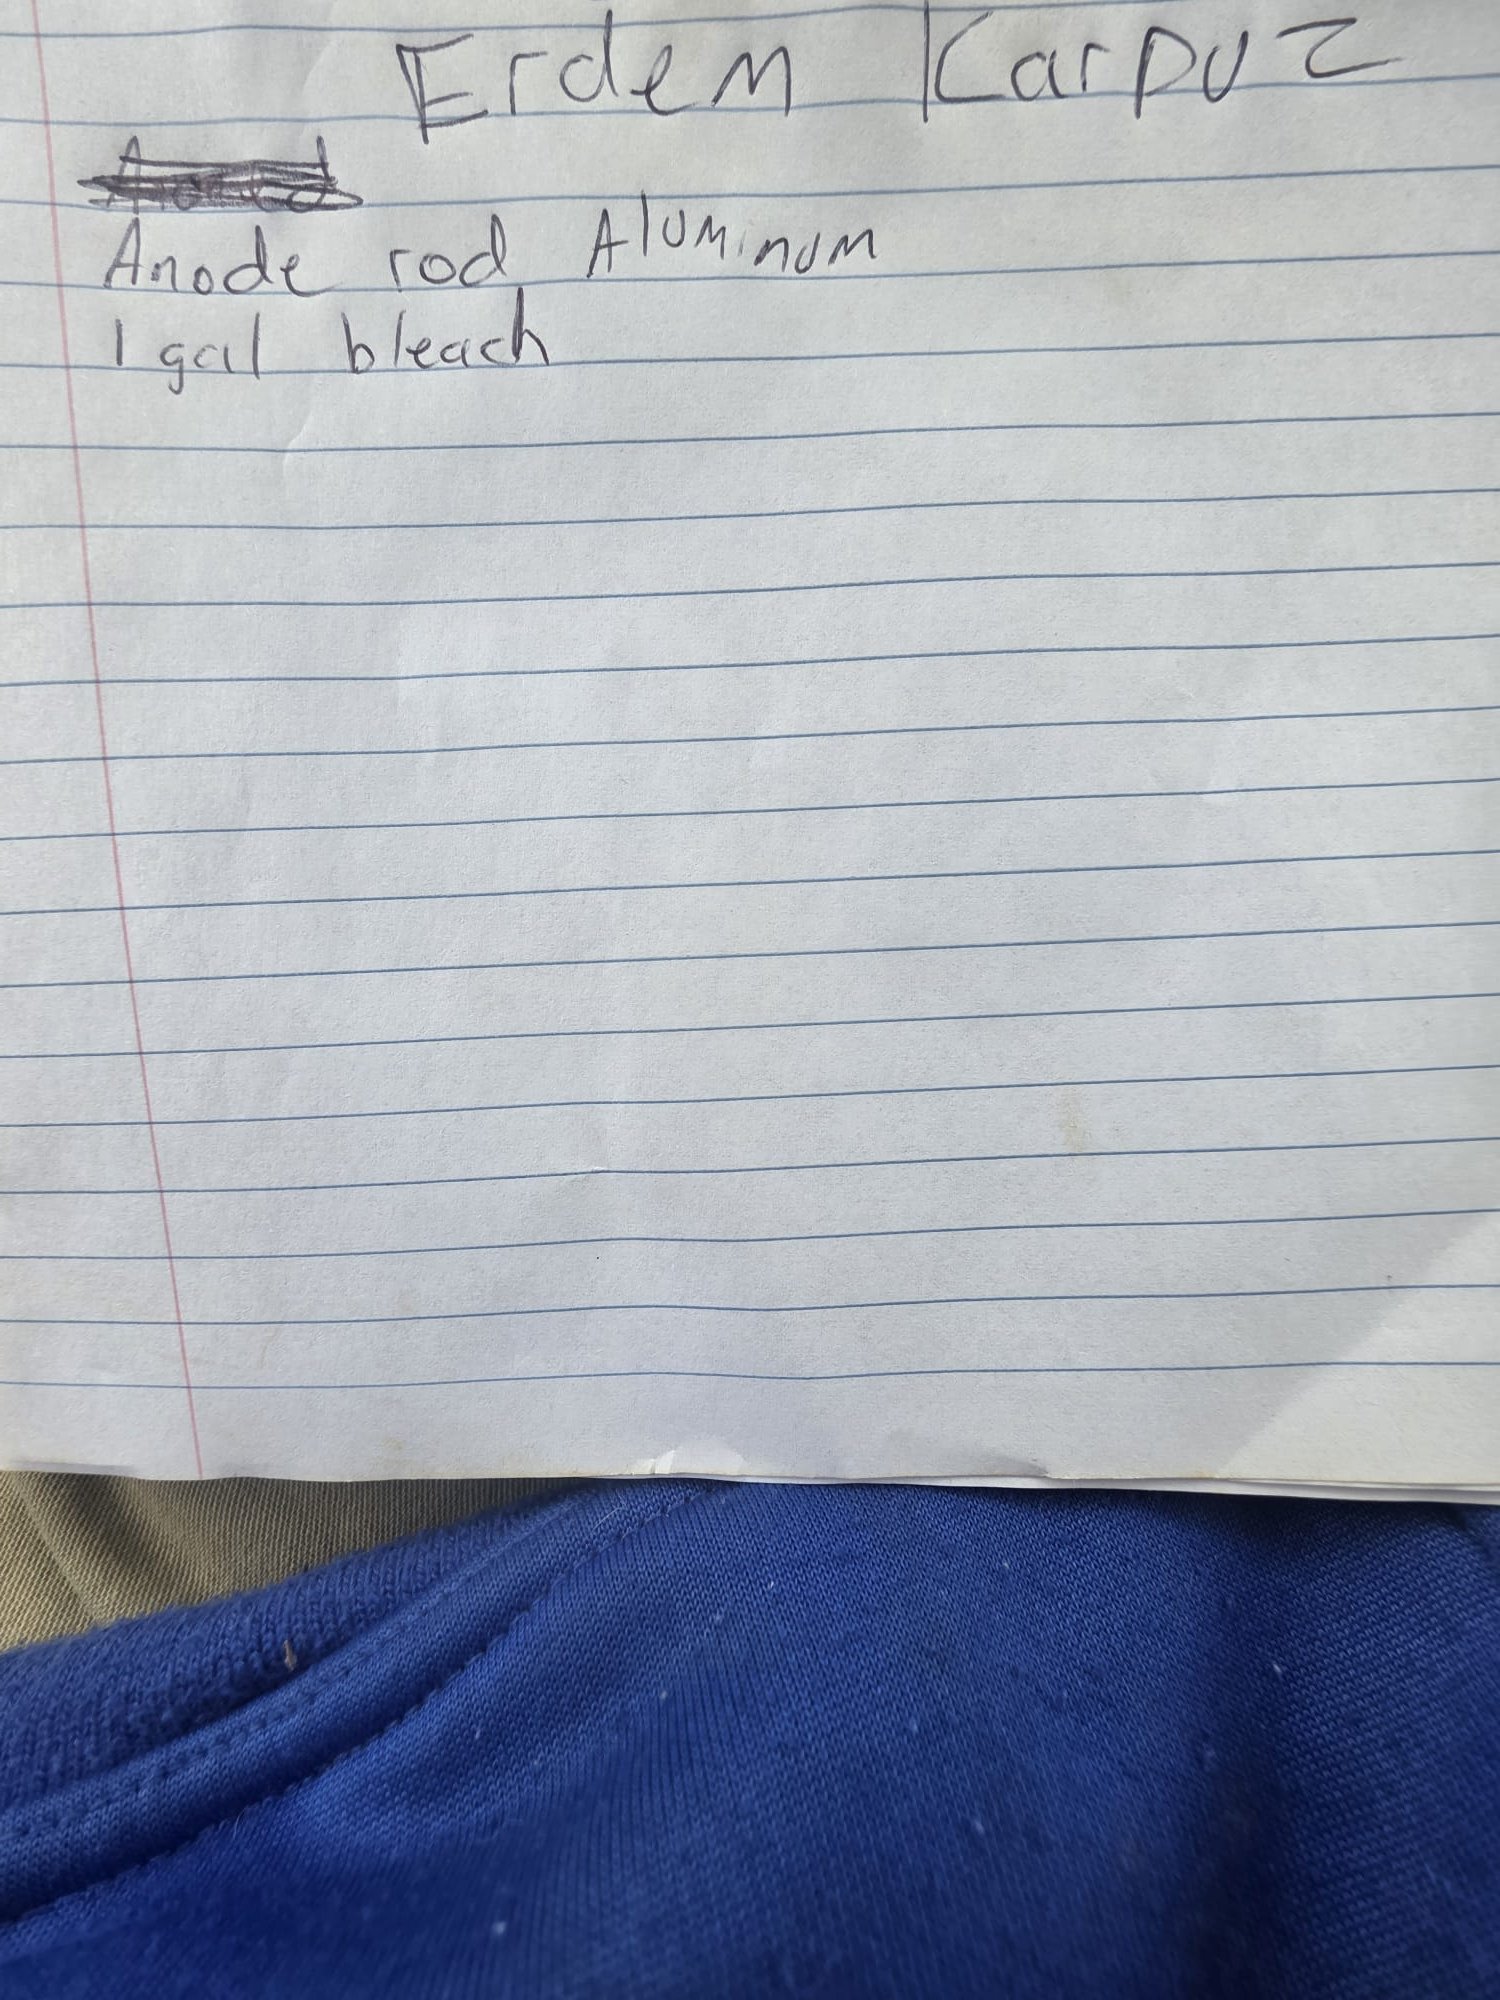 Erdem Karpuz
Anode rod Aluminum
1 gal bleach